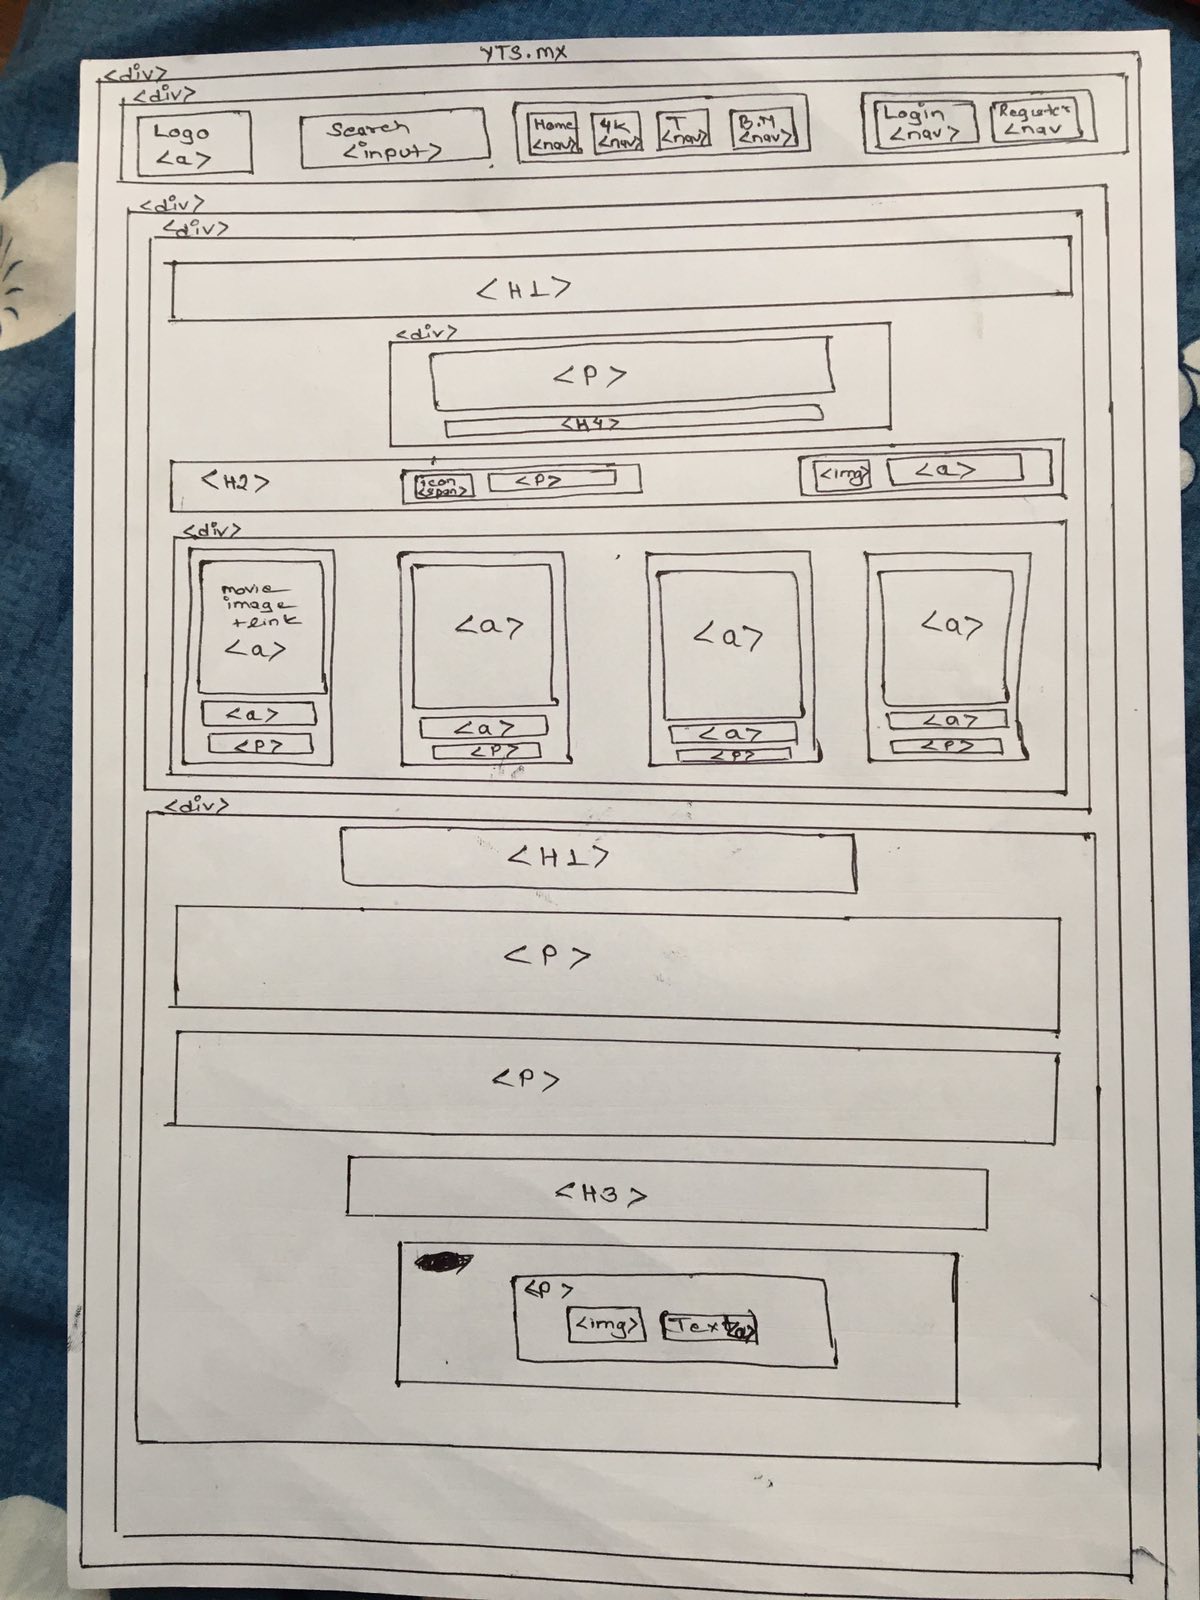 YTS.mx
<div>
<div>
Logo
<a>
Search
<input>
Home
<nav>
4K
<nav>
T
<nav>
B.M
<nav>
Login
<nav>
Register
<nav
<div>
<div>
<H1>
<div>
<P>
<H4>
<H2>
icon
<span>
<P>
<img>
<a>
<div>
movie
image
+link
<a>
<a>
<P>
<a>
<a>
<P>
<a>
<a>
<P>
<a>
<a>
<P>
<div>
<H1>
<P>
<P>
<H3>
<P>
<img>
Text <a>